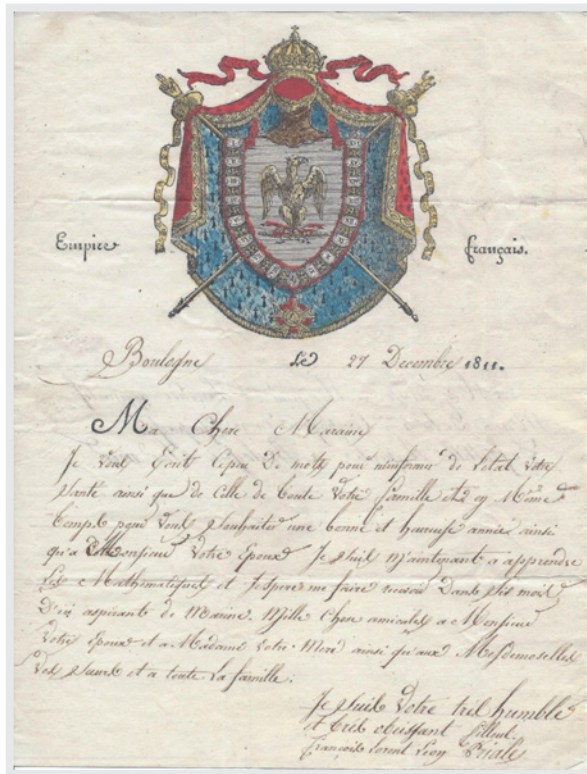 Empire français.
Boulogne Le 27 Decembre 1811.
Ma Chere Maraine
Je vous Ecrit Cepeu De mots pour minformer de Letat Votre
Santé ainsi que de Celle de toute Votre famille et eg Même
temps pour vous Souhaiter une bonne et heureuse année ainsi
qu'a Monsieur Votre Epoux Je Suis M'aintenant a apprendre
Les Mathmatiques et J'espere me faire recevoir Dans Six mois
D'ici aspirante de Marine. Mille Chose amicales a Monsieur
Votre Epoux et a Madame Votre Mere ainsi qu'aux Mesdemoselles
Vos Sœurs et a toute La famille.
Je Suis Votre tres humble
et tres obeissant filleul.
francois Lion Priale